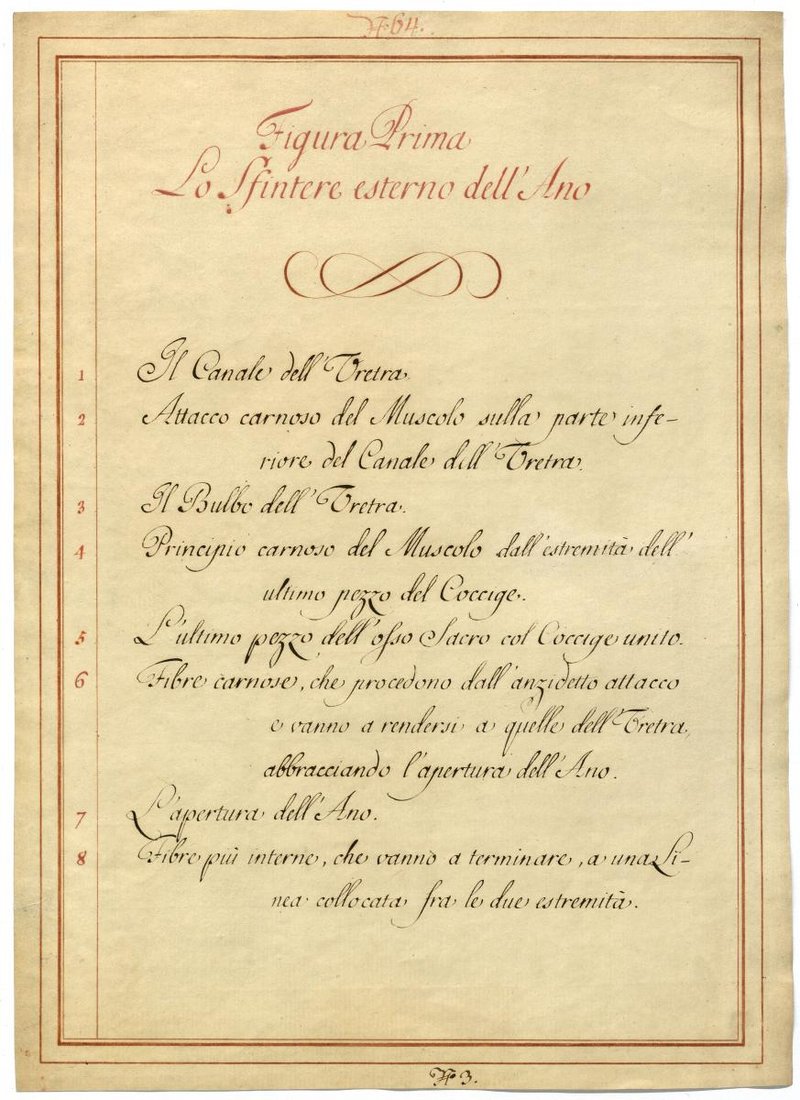 N° 64.
Figura Prima
Lo Sfintere esterno dell'Ano
1 Il Canale dell'Vretra.
2 Attacco carnoso del Muscolo sulla parte infe-
riore del Canale dell'Vretra.
3 Il Bulbo dell'Vretra.
4 Principio carnoso del Muscolo dall'estremità dell'
ultimo pezzo del Coccige.
5 L'ultimo pezzo dell'osso Sacro col Coccige unito.
6 Fibre carnose, che procedono dall'anzidetto attacco
e vanno a rendersi a quelle dell'Vretra,
abbracciando l'apertura dell'Ano.
7 L'apertura dell'Ano.
8 Fibre più interne, che vanno a terminare, a una Li-
nea collocata fra le due estremità.
N° 3.